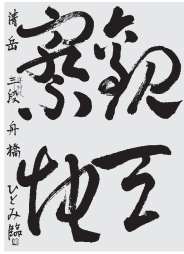 觀天
察地
清岳
三段 舟橋ひとみ臨